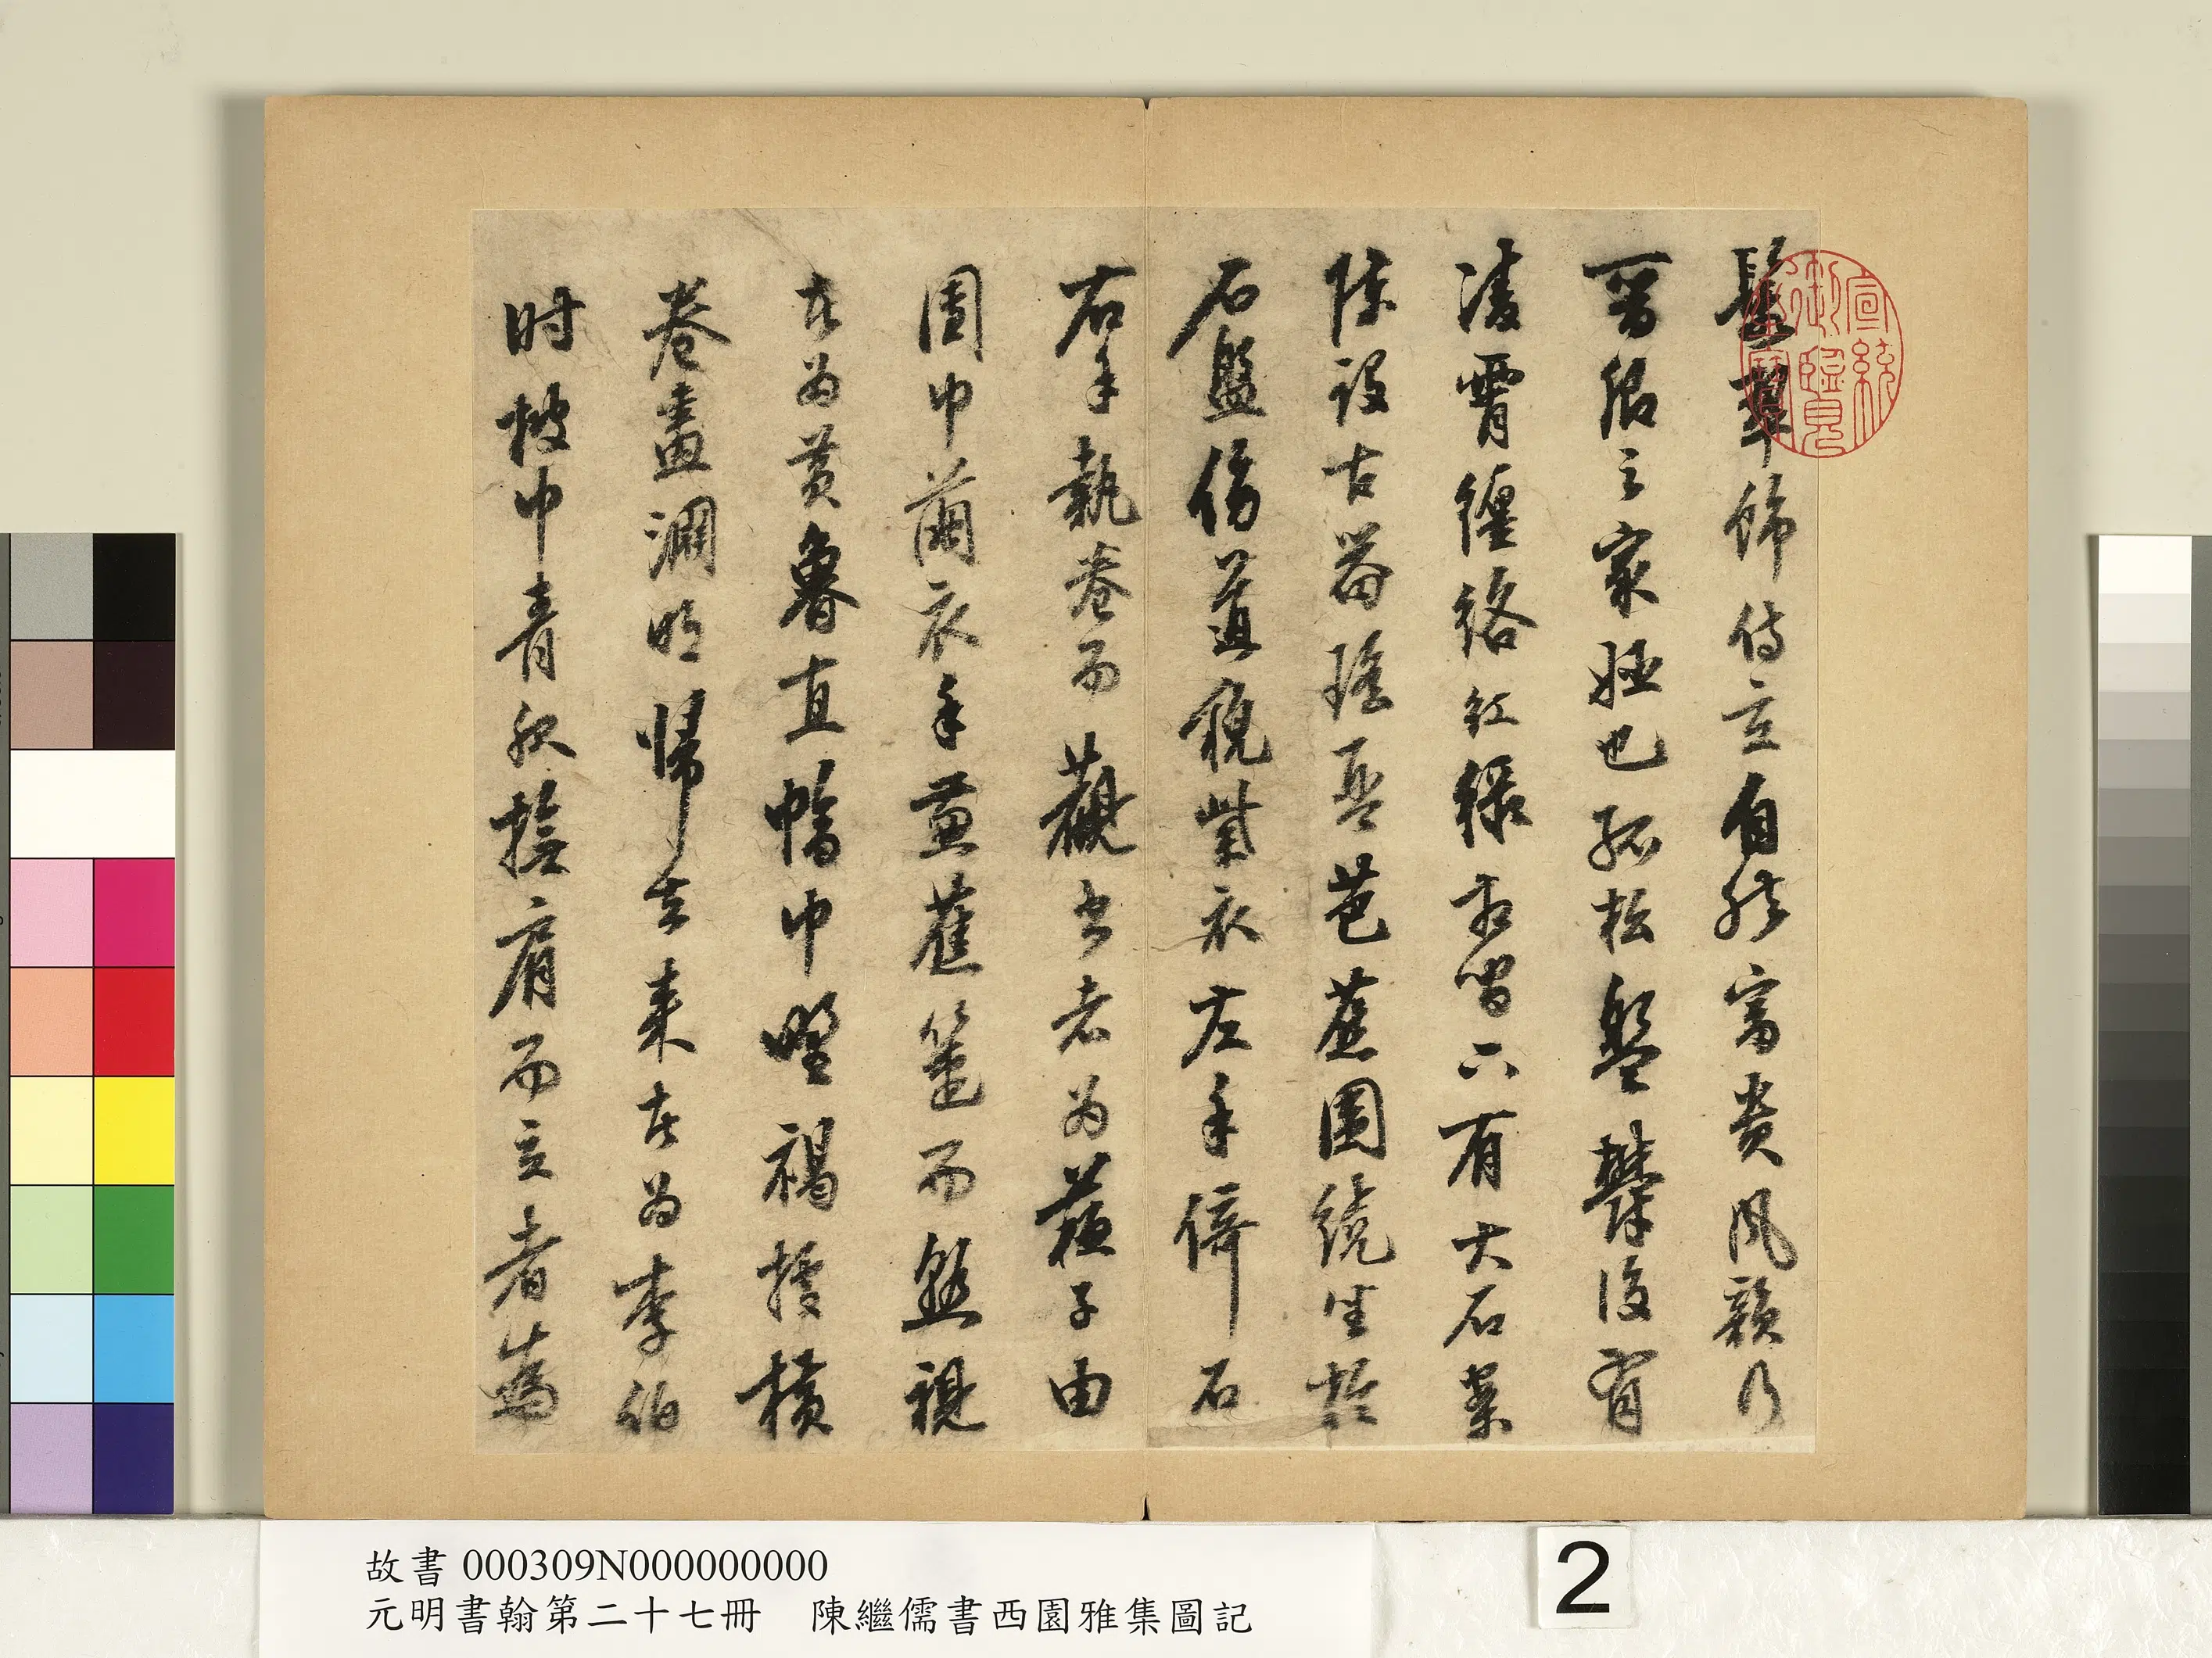 鬟翠飾侍立自然富貴風韻乃
晉卿之家姬也孤松盤鬱後有
凌霄纏絡紅綠相間下有大石案
陳設古器瑤琴芭蕉圍繞坐於
石盤傍道帽紫衣左手倚石
右手執卷而觀書者為蘇子由
團巾繭衣手秉蕉箑而熟視
者為黃魯直幅巾野褐據橫
卷畫淵明歸去來者為李伯
时披巾青服撫肩而立者為
宣統御覽之寶
故書 000309N000000000
元明書翰第二十七冊 陳繼儒書西園雅集圖記
2